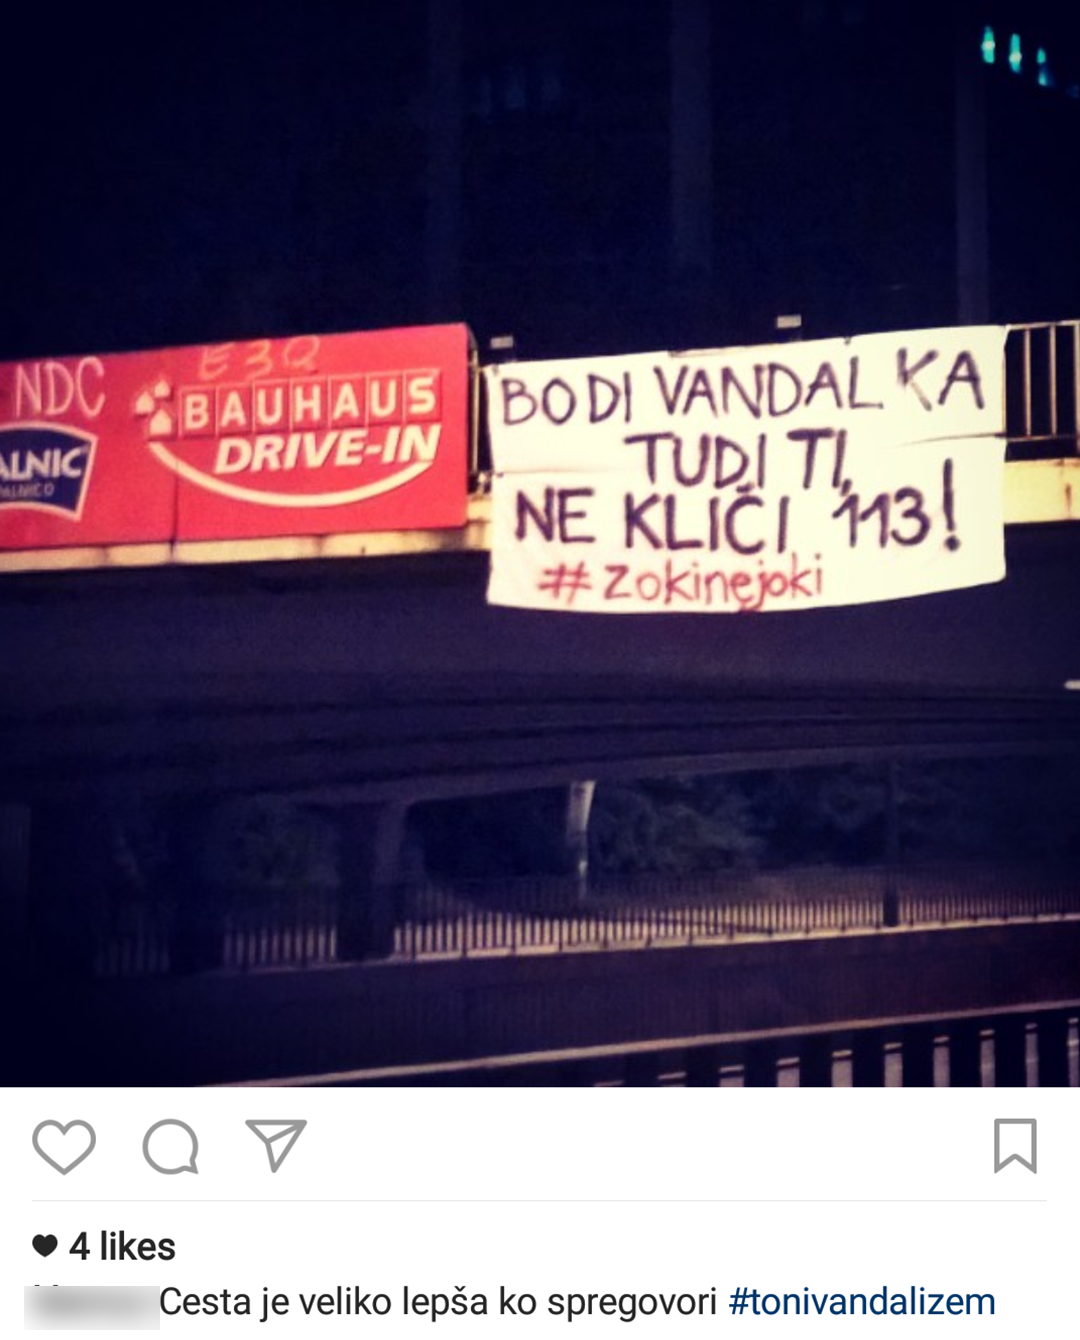 NDC
E3Q
ALNIC
BAUHAUS
DRIVE-IN
BODI VANDALKA
TUDI TI,
NE KLIČI 113!
#zokinejoki
4 likes
Cesta je veliko lepša ko spregovori #tonivandalizem